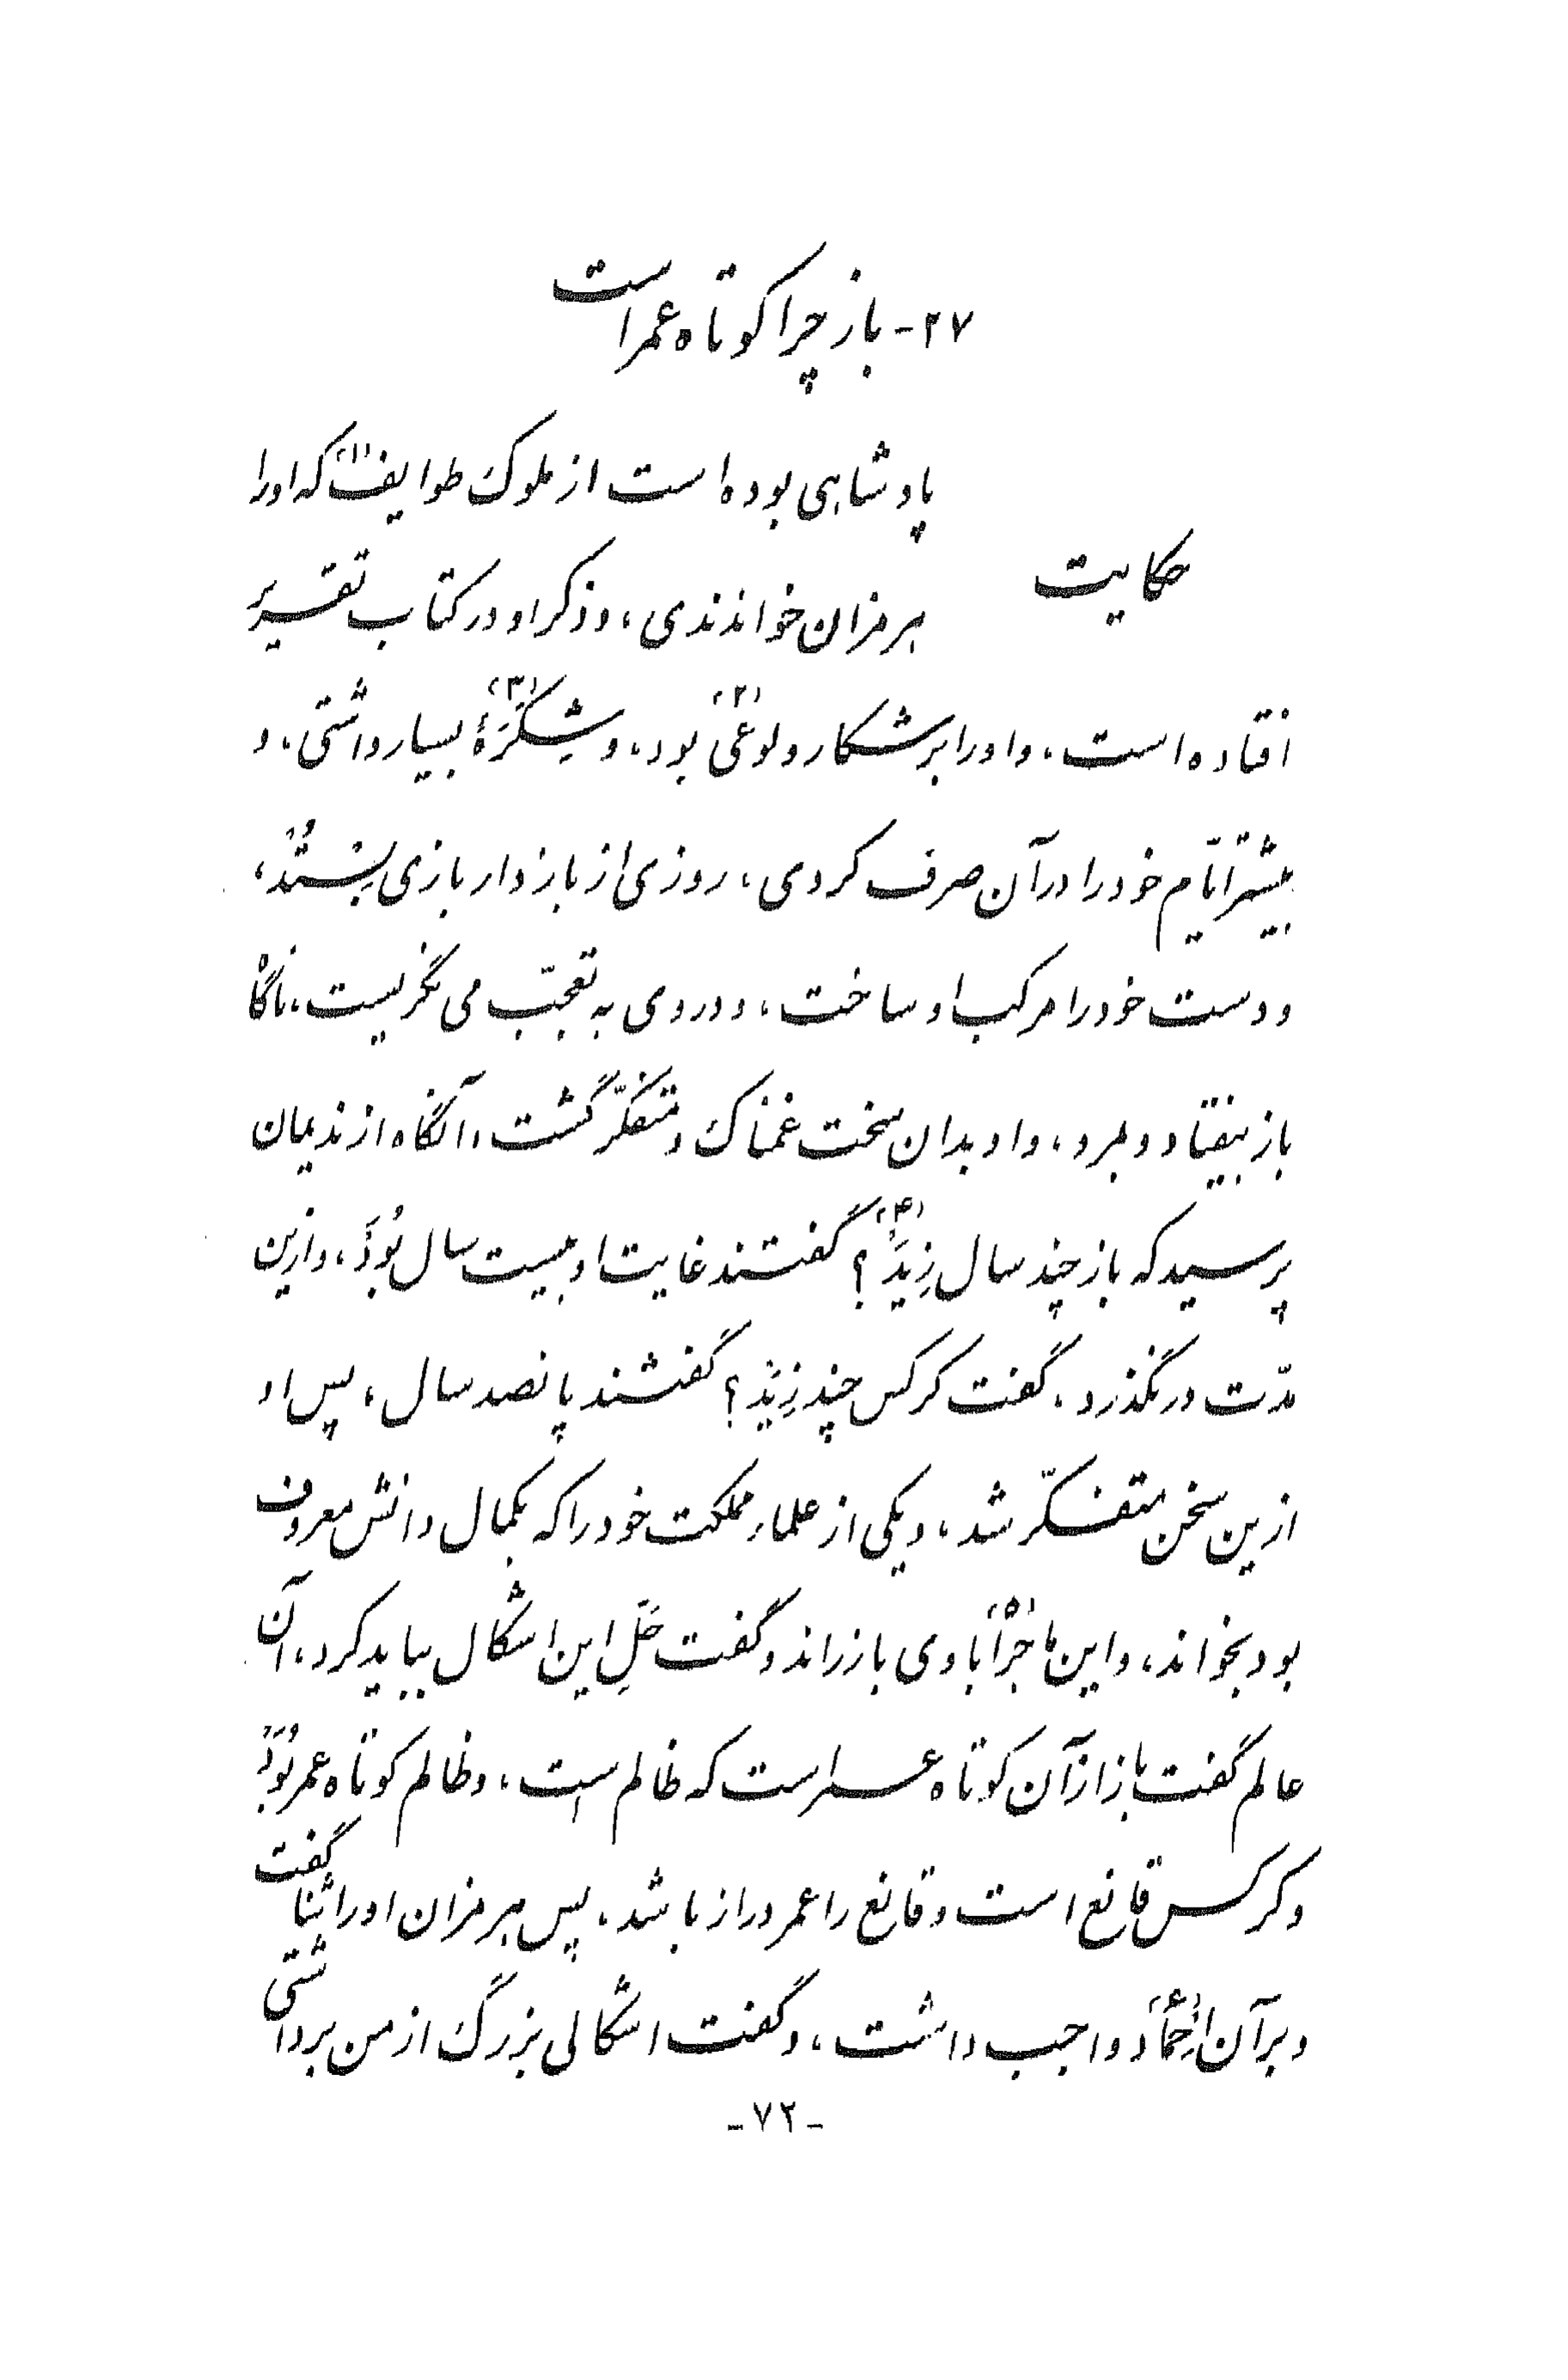 ۲۷- باز چرا کوتاه عمر است
پادشاهی بوده است از ملوک طوایف(۱) که او را
حکایت
هرمزان خواندندی، و ذکر او در کتاب تفسیر
افتاده است، و او را بر شکار ولوعی(۲) بود، و شِکَرَهٔ(۳) بسیار داشتی، و
بیشتر ایّام خود را در آن صرف کردی، روزی از بازدار بازی بِستُد،
و دست خود را مرکب او ساخت، و در وی به تعجّب می نگریست، ناگاه
باز بیفتاد و بمرد، و او بدان سخت غمناک و متفکّر گشت، آنگاه از ندیمان
پرسید که باز چند سال زِیَد(۴)؟ گفتند غایت او بیست سال بُوَد، و ازین
مدّت در نگذرد، گفت کرکس چند زِیَد؟ گفتند پانصد سال، پس او
ازین سخن متفکّر شد، و یکی از علماء مملکت خود را که بکمال دانش معروف
بود بخواند، و این ماجَرا(۵) با وی باز راند و گفت حَلِّ این اشکال بباید کرد، آن
عالم گفت باز از آن کوتاه عمر است که ظالم است، و ظالم کوتاه عمر بُوَد
و کرکس قانع است و قانع را عمر دراز باشد، پس هرمزان او را ثنا گفت
و بر آن اِحماد(۶) واجب داشت، و گفت اشکالی بزرگ از من برداشتی
-۷۲-